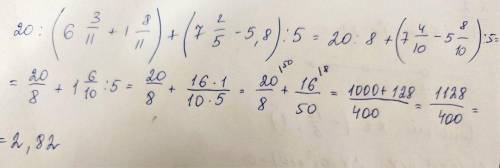 20 : (6 3/11 + 1 8/11) + (7 2/5 - 5,8) : 5 = 20 : 8 + (7 4/10 - 5 8/10) : 5 =
= 20/8 + 1 6/10 : 5 = 20/8 + 16·1/10·5 = 20/8 ⁽⁵⁰ + 16/50 ⁽⁸ = 1000+128/400 = 1128/400 =
= 2,82